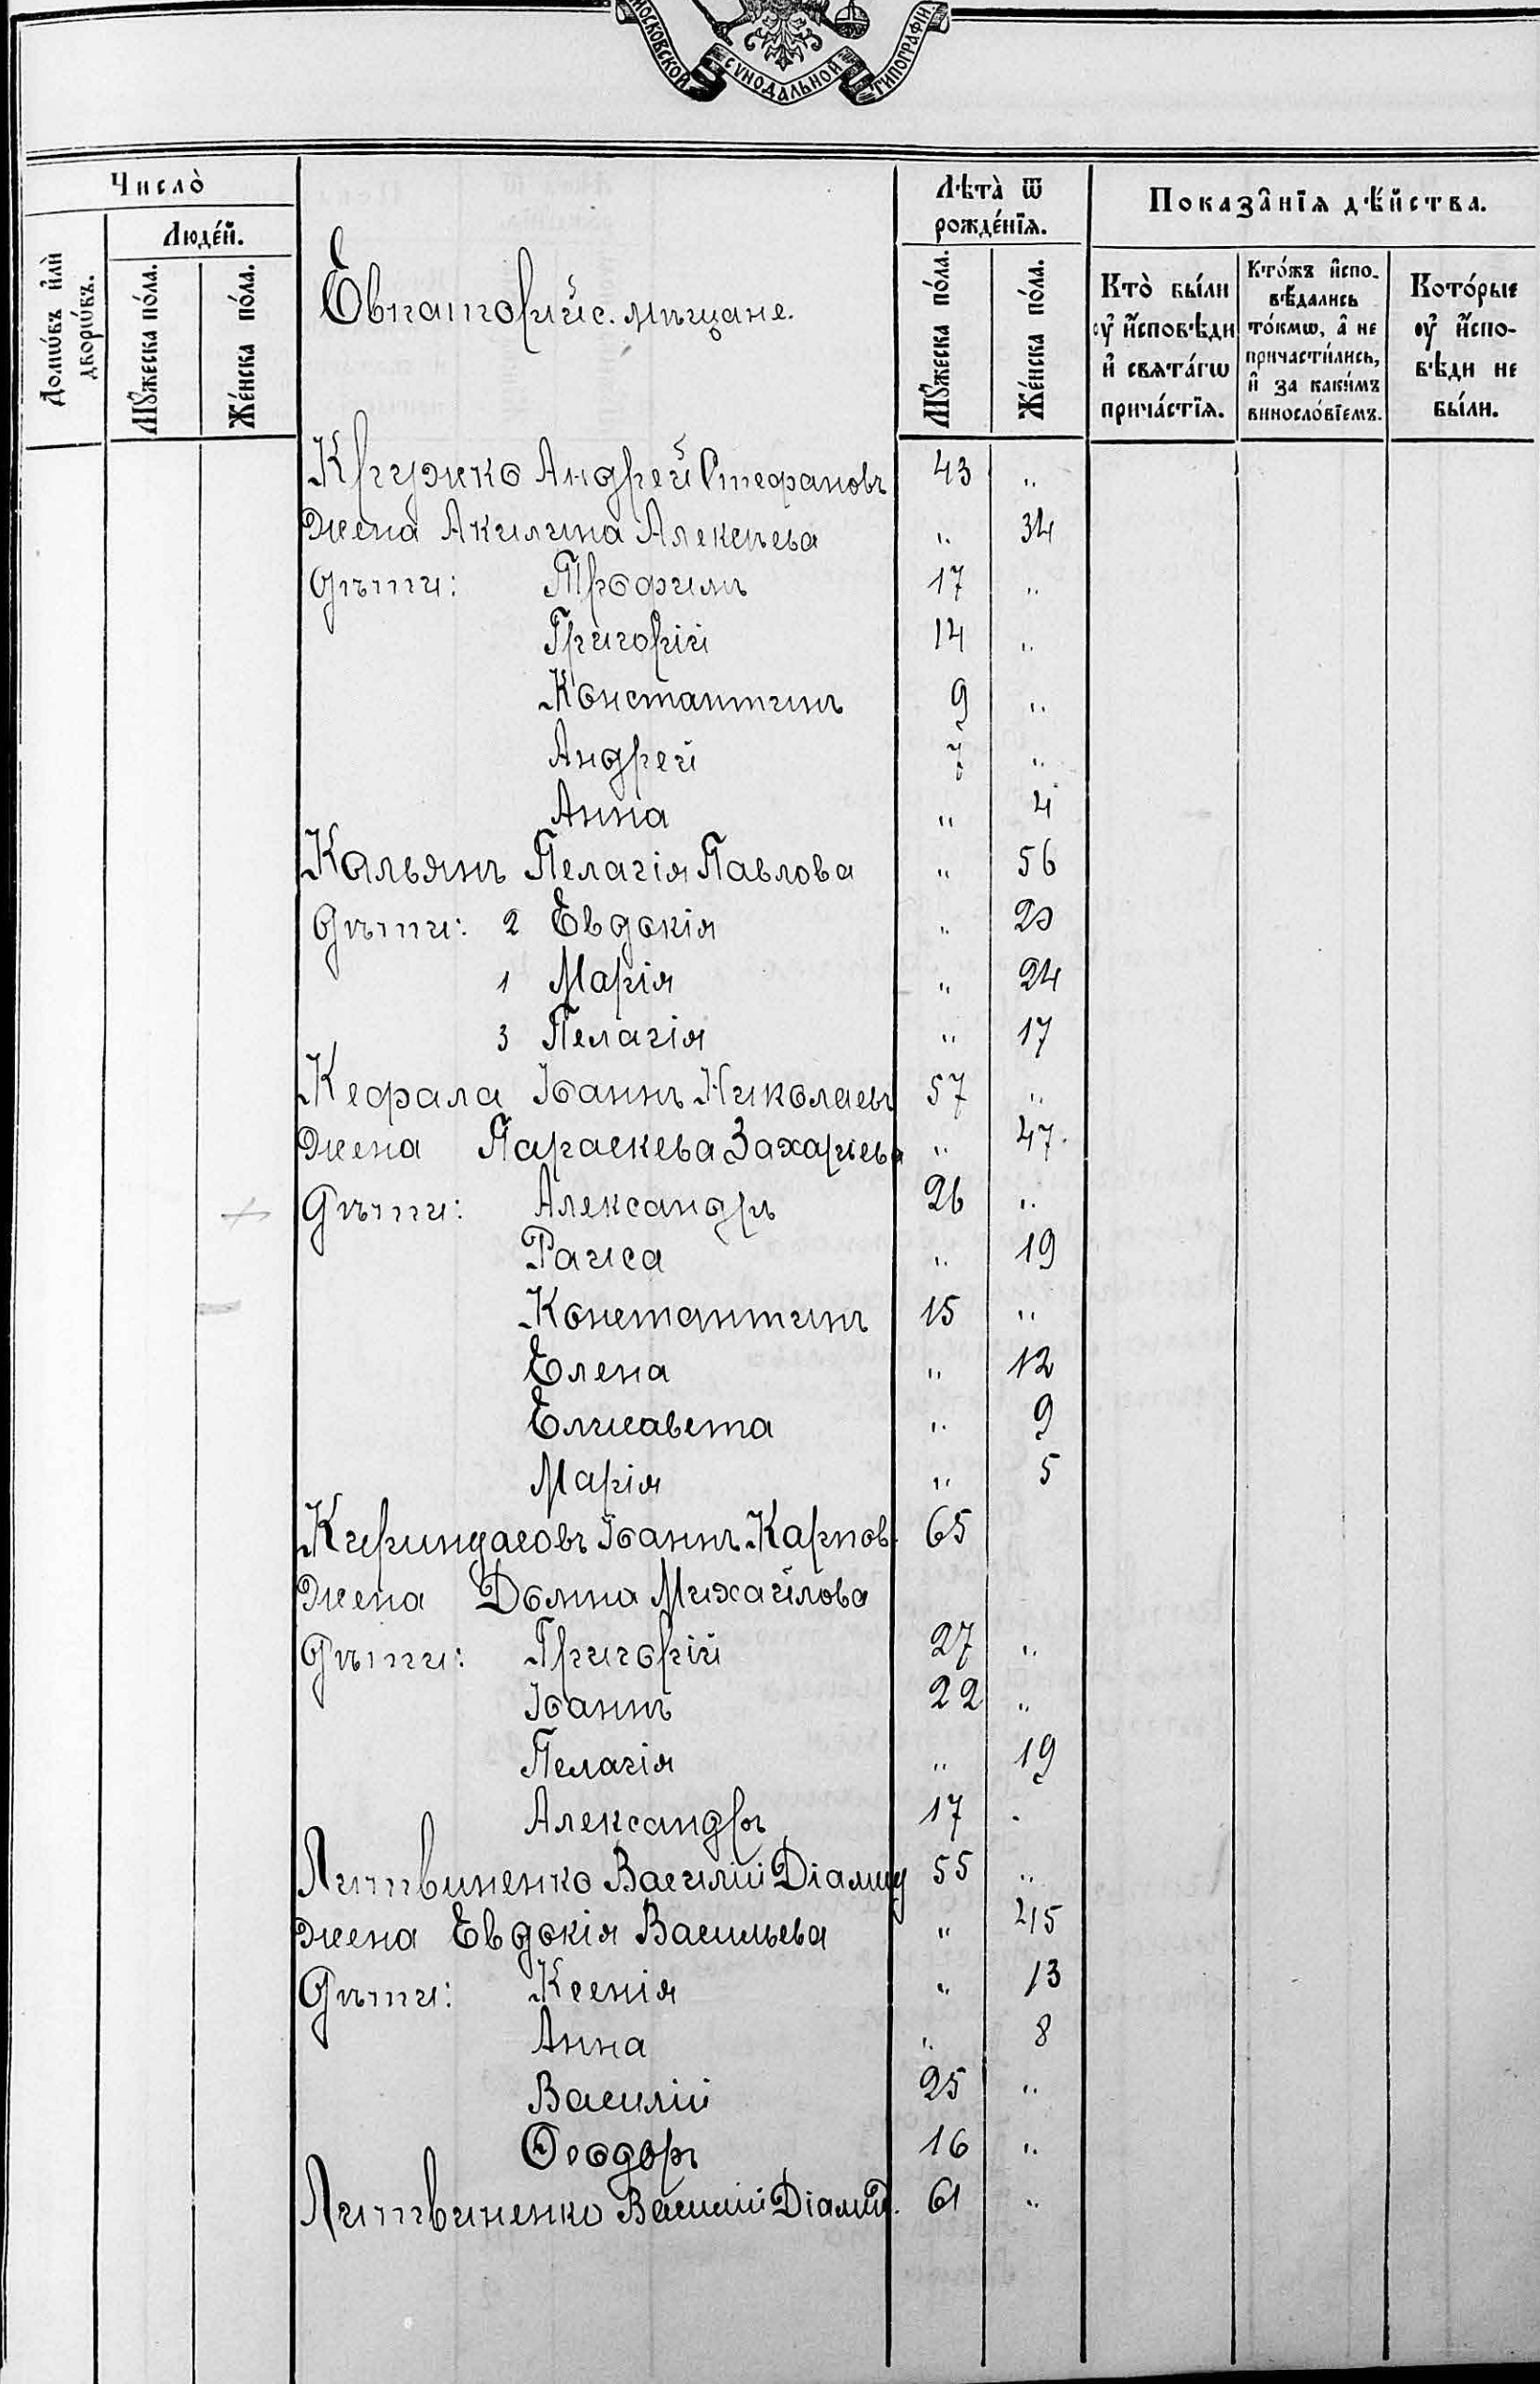 МОСКОВСКОЙ СУНОДАЛЬНОЙ ТИПОГРАФІИ.
Число̀
Люде́й.
Домѡ́въ и҆лѝ дворѡ́въ.
Мꙋ́жеска по́ла.
Же́нска по́ла.
Евпаторійс. мѣщане.
Лѣта̀ ѿ рожде́нїѧ.
Мꙋ́жеска по́ла.
Же́нска по́ла.
Показа̑нїѧ дѣ́йства.
Кто̀ бы́ли ᲂу҆ и҆́сповѣди и҆ свѧта́гѡ прича́стїѧ.
Кто́жъ и҆спо-вѣ́дались то́кмѡ, а҆ не причасти́лись, и҆ за каки́мъ виносло́вїемъ.
Кото́рые ᲂу҆ и҆́спо-вѣди не бы́ли.
Кружко Андрей Стефановъ 43 "
жена Акилина Алексѣева " 34
Дѣти: Трофимъ 17 "
Григорій 14 "
Константинъ 9 "
Андрей 7 "
Анна " 4
Кальянъ Пелагія Павлова " 56
Дѣти: 2 Евдокія " 20
1 Марія " 24
3 Пелагія " 17
Кефала Іоаннъ Николаевъ 57 "
жена Параскева Захаріева " 47.
Дѣти: Александръ 26 "
Раиса " 19
Константинъ 15 "
Елена " 12
Елисавета " 9
Марія " 5
Кириндасовъ Іоаннъ Карпов. 65
жена Домна Михайлова
Дѣти: Григорій 27 "
Іоаннъ 22 "
Пелагія " 19
Александръ 17 "
Литвиненко Василій Діамид 55 "
жена Евдокія Васильева " 45
Дѣти: Ксенія " 13
Анна " 8
Василій 25 "
Ѳеодоръ 16 "
Литвиненко Василій Діамид. 61 "